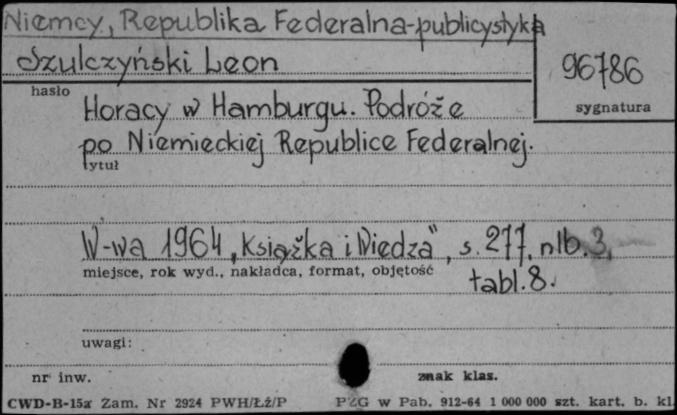 Niemcy, Republika Federalna-publicystyka
Szulczyński Leon
96786
hasło
sygnatura
Horacy w Hamburgu. Podróże
po Niemieckiej Republice Federalnej.
tytuł
W-wa 1964 „Książka i Wiedza", s. 277, nlb. 3,
miejsce, rok wyd., nakładca, format, objętość
tabl. 8.
uwagi:
nr inw.
znak klas.
CWD-B-15a Zam. Nr 2924 PWH/Łż/P
PZG w Pab. 912-64 1 000 000 szt. kart. b. kl.